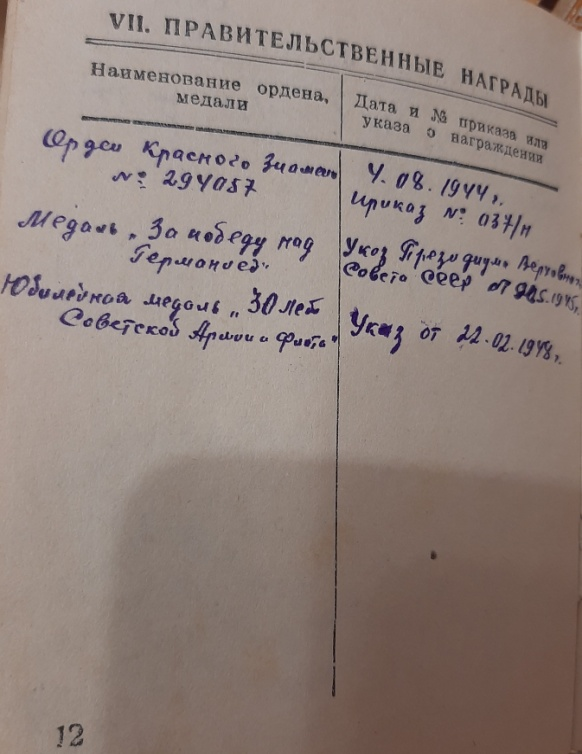 VII. ПРАВИТЕЛЬСТВЕННЫЕ НАГРАДЫ
Наименование ордена,
медали
Дата и № приказа или
указа о награждении
Орден Красного Знамени
№ 294057
4.08.1944 г.
приказ № 037/н
Медаль „За победу над
Германией"
Указ Президиума Верховного
Совета СССР от
Юбилейная медаль „30 лет
Советской Армии и Флота"
Указ от 22.02.1948 г.
12